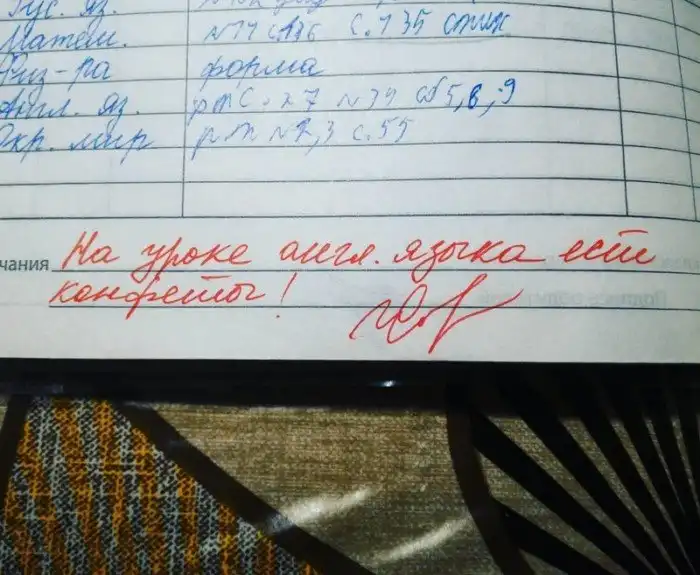 Рус. яз.
Матем. с. 135 стих
Физ-ра форма
Англ. яз. рт с. 27 №34 5, 8, 9
Окр. мир рт №2,3 с. 55
чания На уроке англ. языка ест
конфеты!